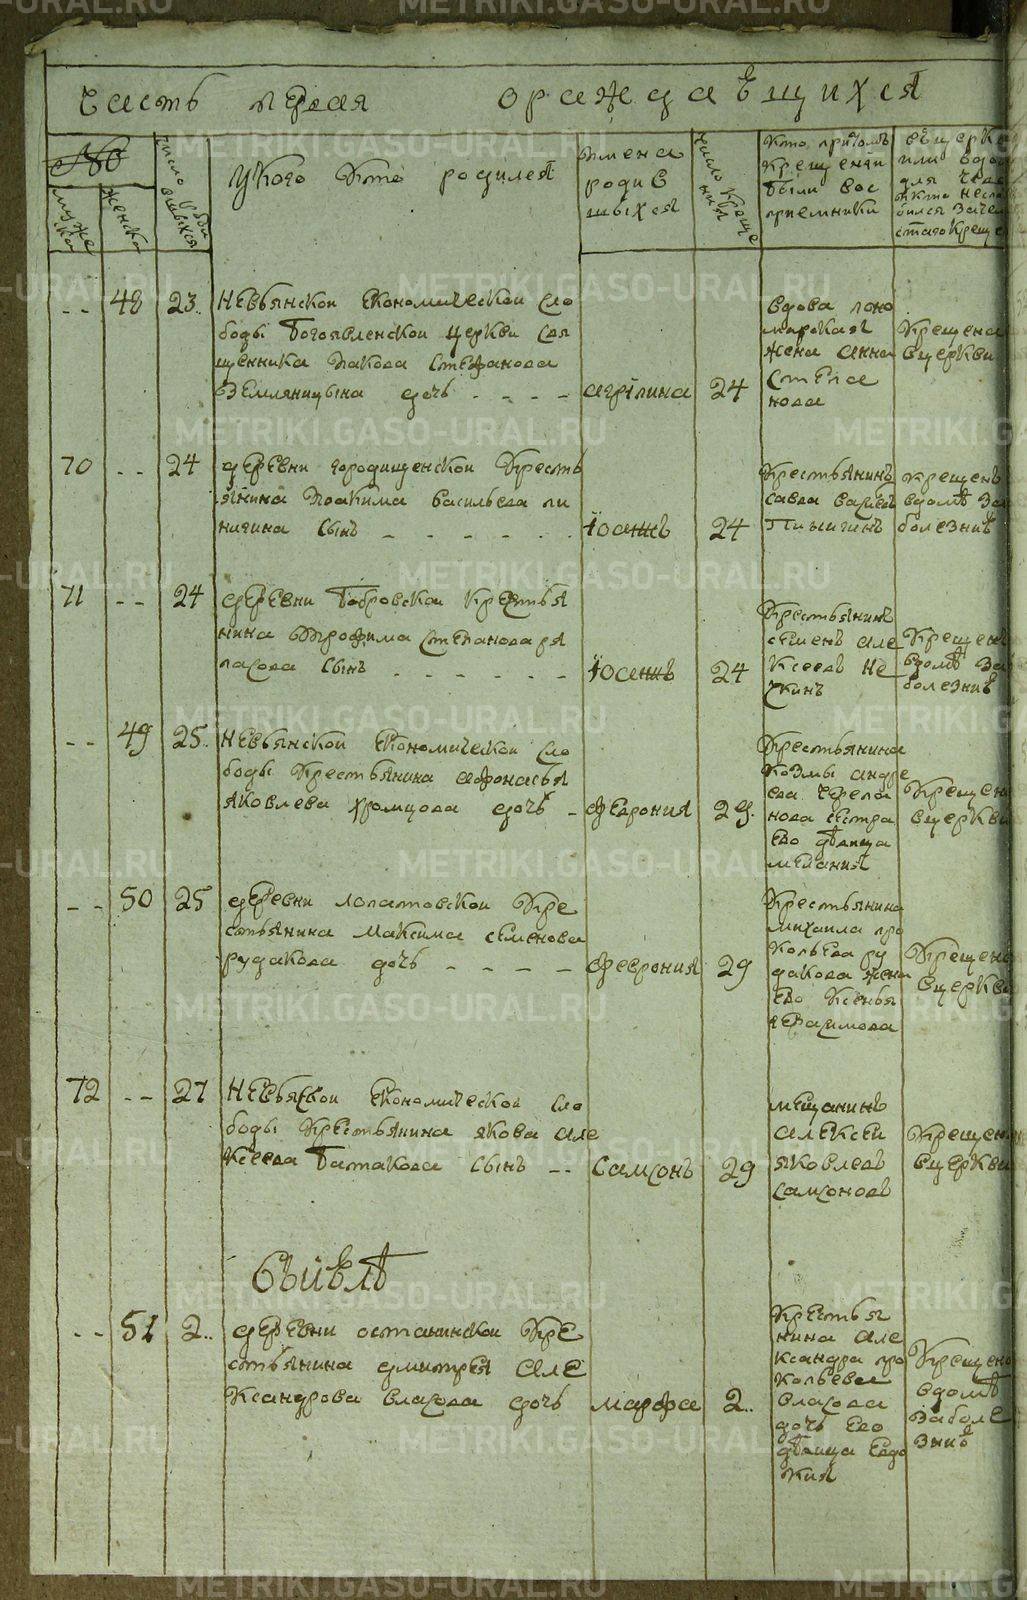 METRIKI.GASO-URAL.RU
часть первая о раждаѣщихся
№
мужеска
женска
число родившихся
у кого кто родился
имена родившихся
число крещения
кто при томъ крещении были восприемники
48 23 невьянской економической сло
боды богоявленской церкви свя
щенника иакова стефанова
земляницына дочь - - - - агрипина 24
вдова поно
марская
жена анна
степа
нова
крещена
в церкви
70 - - 24 деревни городищенской кресть
янина иоакима васильева пи
нигина сынъ - - - - - иосифъ 24
крестьянинъ
савва
пинигинъ
крещенъ
в домѣ за
болезниѣ
71 - - 24 деревни бобровской крестья
нина трофима степанова ря
пасова сынъ - - - - - 24
крестьянинъ
семенъ але
ксеевъ не
крещенъ
в домѣ за
болезниѣ
- - 49 25 невьянской економической сло
боды крестьянина афонасья
яковлева хромцова дочь - феврония 29
крестьянина
козмы андре
ева черепа
нова сестра
ево дѣвица
мелания
крещена
в церкви
- - 50 25 деревни лопатовской кре
стьянина максима семенова
рудакова дочь - - - - феврония 29
крестьянина
михаила про
копьева ру
дакова жена
ево ксенья
крещена
в церкви
72 - - 27 невьянской економической сло
боды крестьянина якова але
ксеева батакова сынъ - - самсонъ 29
мещанинъ
алексеи
яковлевъ
самсоновъ
крещенъ
в церкви
въ июлѣ
- - 51 2 деревни останинской кре
стьянина дмитрея але
ксандрова власова дочь марфа 2
крестья
нина але
ксандра про
копьева
власова
дочь ево
дѣвица евдо
кия
крещена
в домѣ
за боле
зниѣ